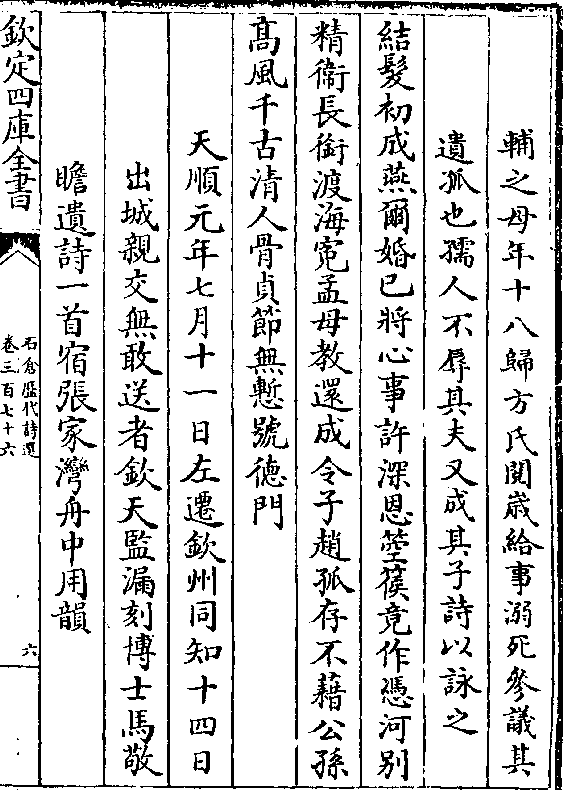 輔之母年十八歸方氏閱歲給事溺死參議其
遺孤也孺人不辱其夫又成其子詩以詠之
結髮初成燕爾婚已將心事許深恩箜篌竟作憑河别
精衛長銜渡海寃孟母教還成令子趙孤存不藉公孫
髙風千古清人骨貞節無慙號徳門
天順元年七月十一日左遷欽州同知十四日
出城親交無敢送者欽天監漏刻博士馬敬
瞻遺詩一首宿張家灣舟中用韻
欽定四庫全書
石倉歴代詩選
卷三百七十六
六